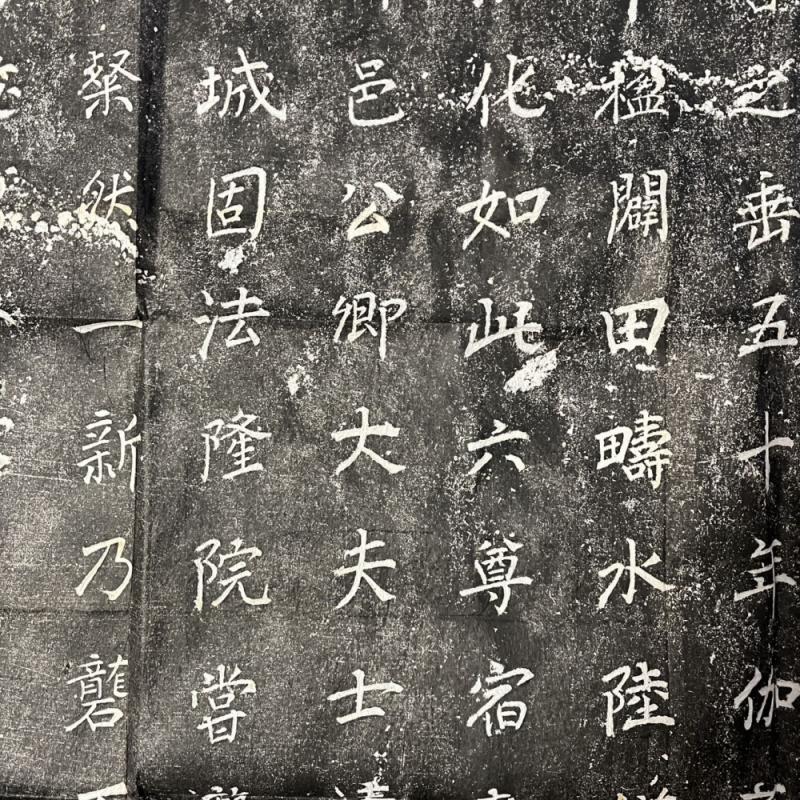 之垂五十年伽
楹闢田疇水陸
化如此六尊宿
邑公卿大夫士
城固法隆院嘗
粲然一新乃礲